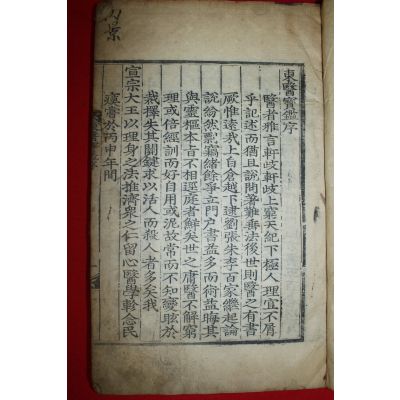 東醫寶鑑序
醫者雅言軒岐軒岐上窮天紀下極人理宜不屑
乎記述而猶且說問著難垂法後世則醫之有書
厥惟遠哉上自倉越下逮劉張朱李百家繼起論
說紛然剽竊緒餘爭立門戶書益多而術益晦其
與靈樞本旨不相逕庭者鮮矣世之庸醫不解窮
理或倍經訓而好自用或泥故常而不知變眩於
裁擇失其關鍵求以活人而殺人者多矣我
宣宗大王以理身之法推濟衆之仁留心醫學軫念民
瘼嘗於丙申年間